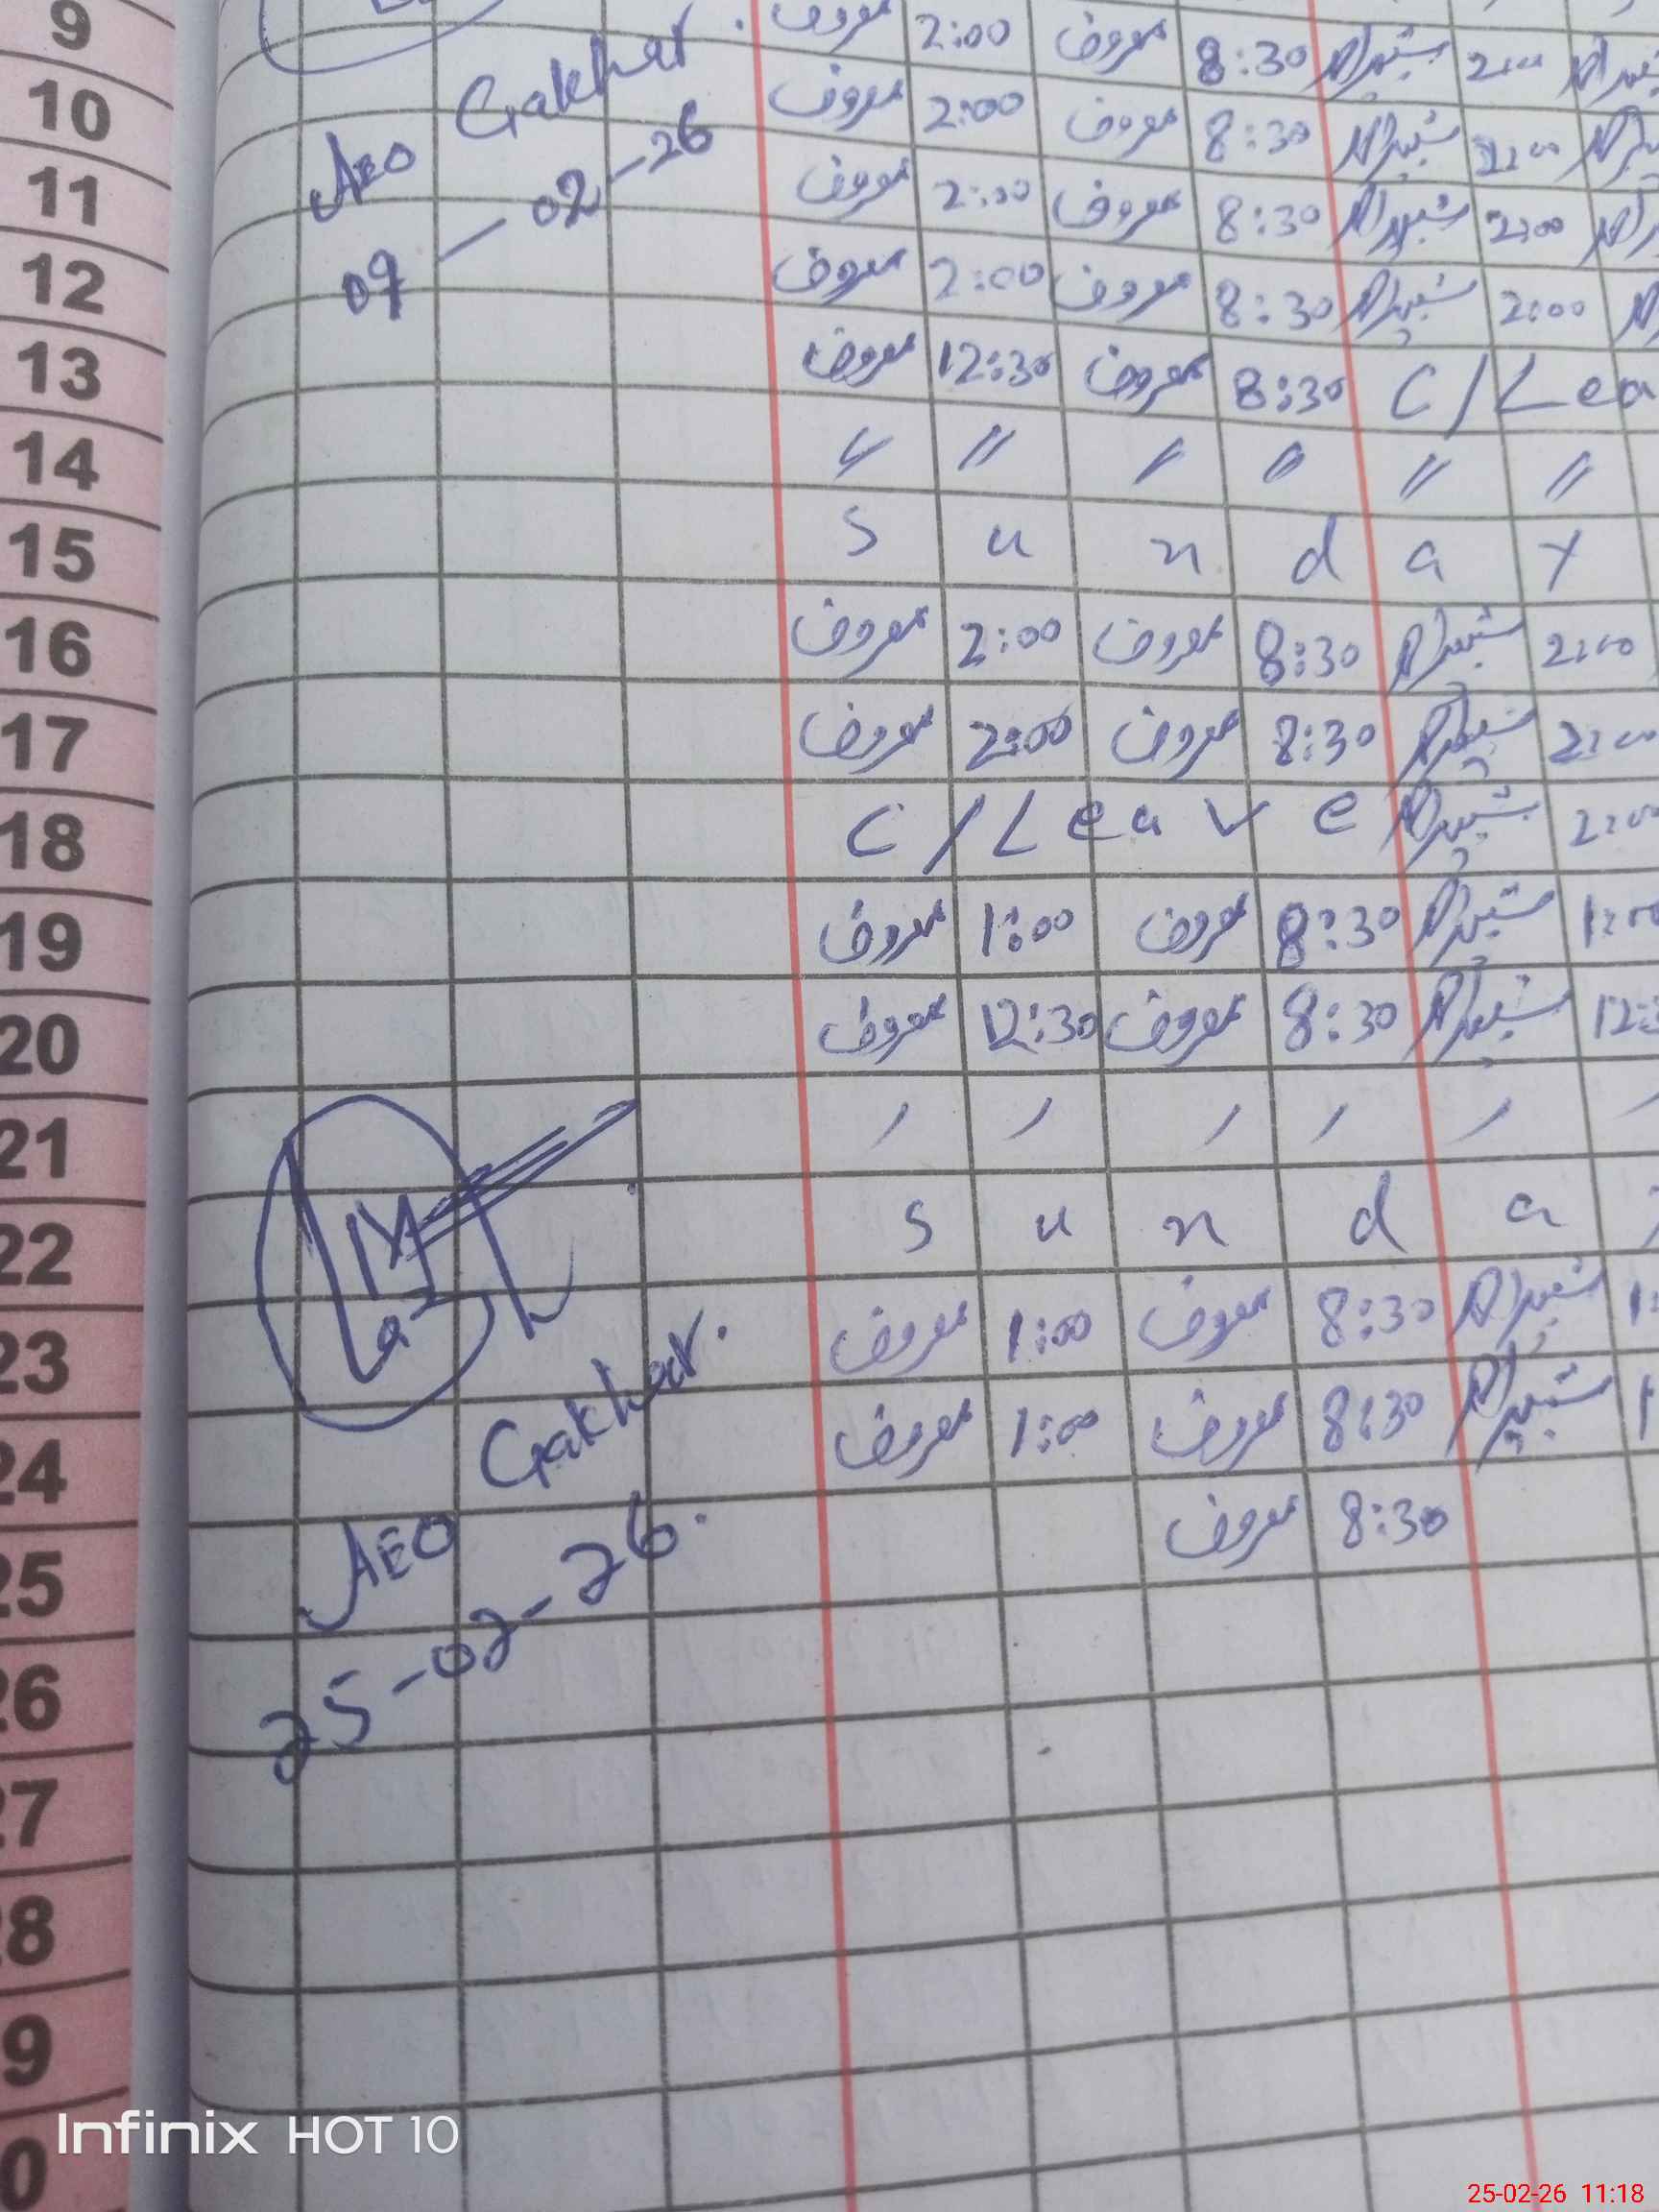 9 معروف 2:00 معروف 8:30 شبیر احمد 2:00
Gakhar.
10 معروف 2:00 معروف 8:30 شبیر احمد 2:00
AEO
11 معروف 2:00 معروف 8:30 شبیر احمد 2:00
09-02-26
12 معروف 2:00 معروف 8:30 شبیر احمد 2:00
13 معروف 12:30 معروف 8:30 C/Lea
14 〃 〃 〃 〃 〃 〃
15 S u n d a y
16 معروف 2:00 معروف 8:30 شبیر احمد 2:00
17 معروف 2:00 معروف 8:30 شبیر احمد 2:00
18 C/Leave شبیر احمد 2:00
19 معروف 1:00 معروف 8:30 شبیر احمد 1:00
20 معروف 12:30 معروف 8:30 شبیر احمد 12:3
21
22 S u n d a
23 معروف 1:00 معروف 8:30 شبیر احمد 1:
24 معروف 1:00 معروف 8:30 شبیر احمد 1
Gakhar.
25 معروف 8:30
AEO
25-02-26.
26
27
28
9
0
Infinix HOT 10
25-02-26 11:18